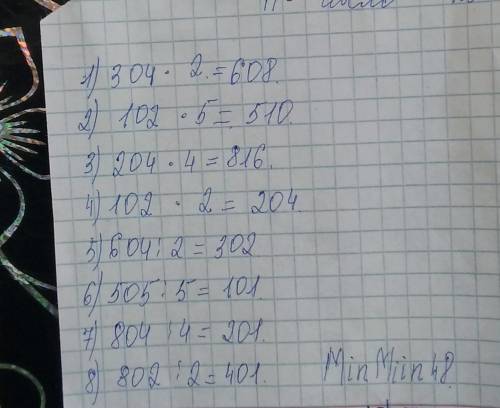 1) 304 · 2. = 608.
2) 102 · 5 = 510.
3) 204 · 4 = 816.
4) 102 · 2 = 204.
5) 604 : 2 = 302
6) 505 : 5 = 101.
7) 804 : 4 = 201.
8) 802 : 2 = 401. MinMiin48.